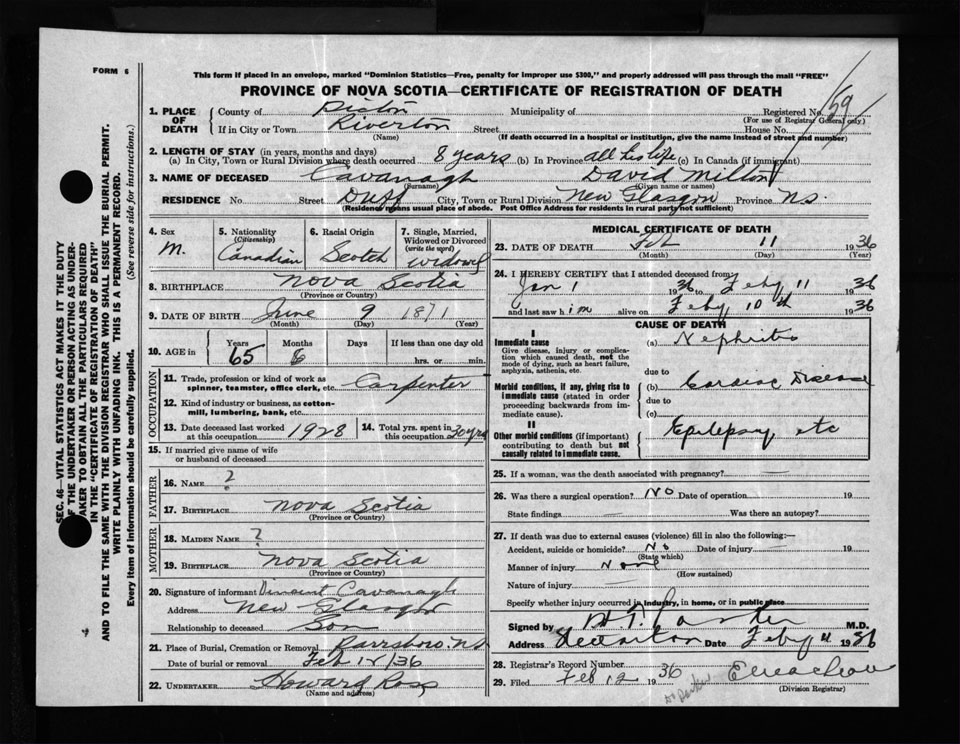 FORM 6
This form if placed in an envelope, marked "Dominion Statistics—Free, penalty for improper use $300," and properly addressed will pass through the mail "FREE"
PROVINCE OF NOVA SCOTIA—CERTIFICATE OF REGISTRATION OF DEATH
SEC. 46—VITAL STATISTICS ACT MAKES IT THE DUTY
OF THE UNDERTAKER OR PERSON ACTING AS UNDER-
TAKER TO OBTAIN ALL THE PARTICULARS REQUIRED
IN THE "CERTIFICATE OF REGISTRATION OF DEATH"
AND TO FILE THE SAME WITH THE DIVISION REGISTRAR WHO SHALL ISSUE THE BURIAL PERMIT.
WRITE PLAINLY WITH UNFADING INK. THIS IS A PERMANENT RECORD.
Every item of information should be carefully supplied. (See reverse side for instructions.)
1. PLACE OF DEATH County of Pictou Municipality of Registered No. 159
(For use of Registrar General only)
If in City or Town Riverton Street House No.
(Name) (If death occurred in a hospital or institution, give the name instead of street and number)
2. LENGTH OF STAY (in years, months and days)
(a) In City, Town or Rural Division where death occurred 8 years (b) In Province all his life (c) In Canada (if immigrant)
3. NAME OF DECEASED Cavanagh David Milton
(Surname) (Given name or names)
RESIDENCE No Street Duff City, Town or Rural Division New Glasgow Province N.S.
(Residence means usual place of abode. Post Office Address for residents in rural party not sufficient)
4. Sex M.
5. Nationality (Citizenship) Canadian
6. Racial Origin Scotch
7. Single, Married, Widowed or Divorced (write the word) widowed
8. BIRTHPLACE Nova Scotia
(Province or Country)
9. DATE OF BIRTH June 9 1871
(Month) (Day) (Year)
10. AGE in Years 65 Months 6 Days If less than one day old hrs. or min.
OCCUPATION
11. Trade, profession or kind of work as spinner, teamster, office clerk, etc. Carpenter
12. Kind of industry or business, as cotton-mill, lumbering, bank, etc.
13. Date deceased last worked at this occupation 1928
14. Total yrs. spent in this occupation 30 yrs
15. If married give name of wife or husband of deceased
FATHER
16. NAME ?
17. BIRTHPLACE Nova Scotia
(Province or Country)
MOTHER
18. MAIDEN NAME ?
19. BIRTHPLACE Nova Scotia
(Province or Country)
20. Signature of informant Vincent Cavanagh
Address New Glasgow
Relationship to deceased Son
21. Place of Burial, Cremation or Removal Parrsboro N.S
Date of burial or removal Feb 12/36
22. UNDERTAKER Howard Ross
(Name and address)
MEDICAL CERTIFICATE OF DEATH
23. DATE OF DEATH Feb 11 1936
(Month) (Day) (Year)
24. I HEREBY CERTIFY that I attended deceased from
Jan 1 1936 to Feby 11 1936
and last saw him alive on Feby 10th 1936
CAUSE OF DEATH
I
Immediate cause (a) Nephritis
Give disease, injury or complication which caused death, not the mode of dying, such as heart failure, asphyxia, asthenia, etc.
due to
Morbid conditions, if any, giving rise to immediate cause (stated in order proceeding backwards from immediate cause). (b) Cardiac Disease
due to
(c)
II
Other morbid conditions (if important) contributing to death but not causally related to immediate cause. Epilepsy etc
25. If a woman, was the death associated with pregnancy? —
26. Was there a surgical operation? No Date of operation 19
State findings — Was there an autopsy?
27. If death was due to external causes (violence) fill in also the following:—
Accident, suicide or homicide? No Date of injury — 19
(State which)
Manner of injury None
(How sustained)
Nature of injury —
Specify whether injury occurred in industry, in home, or in public place
Signed by M.D.
Address Date Feby 11 1936
28. Registrar's Record Number
29. Filed Feb 12 1936
(Division Registrar)
Dr Parker